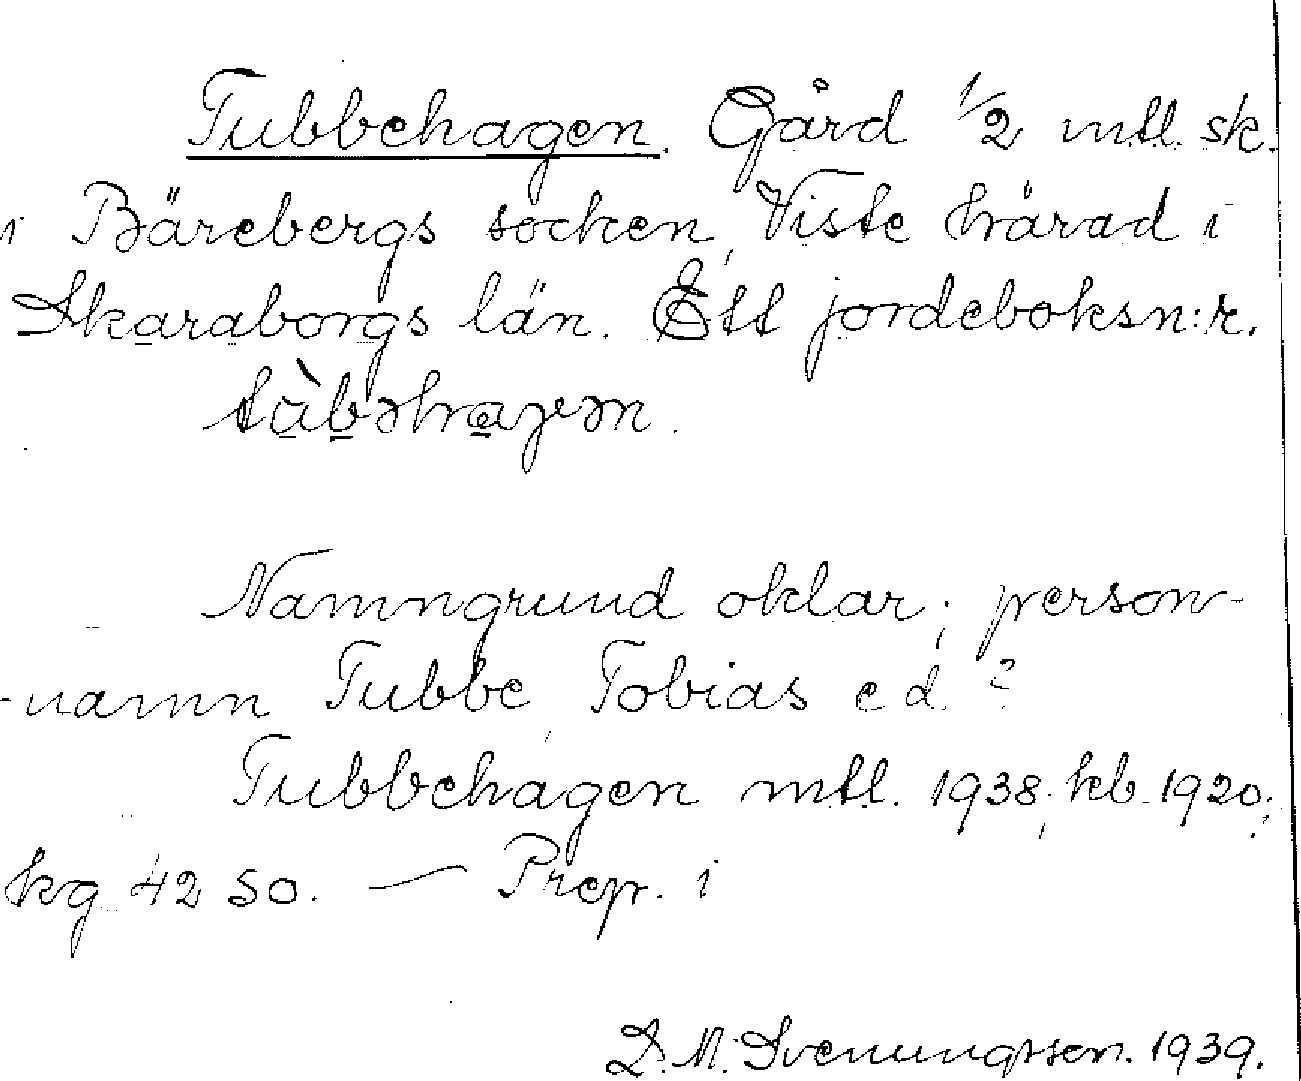 Tubbehagen. Gård 1/2 mtl. sk.
i Bärebergs socken, Viste härad i
Skaraborgs län. Ett jordeboksn:r.
Namngrund oklar; person-
-namn Tubbe, Tobias e d. ?
Tubbehagen mtl. 1938; kb. 1920;
kg 42 SO. — Prep. i
D. M. Svenungsson. 1939.